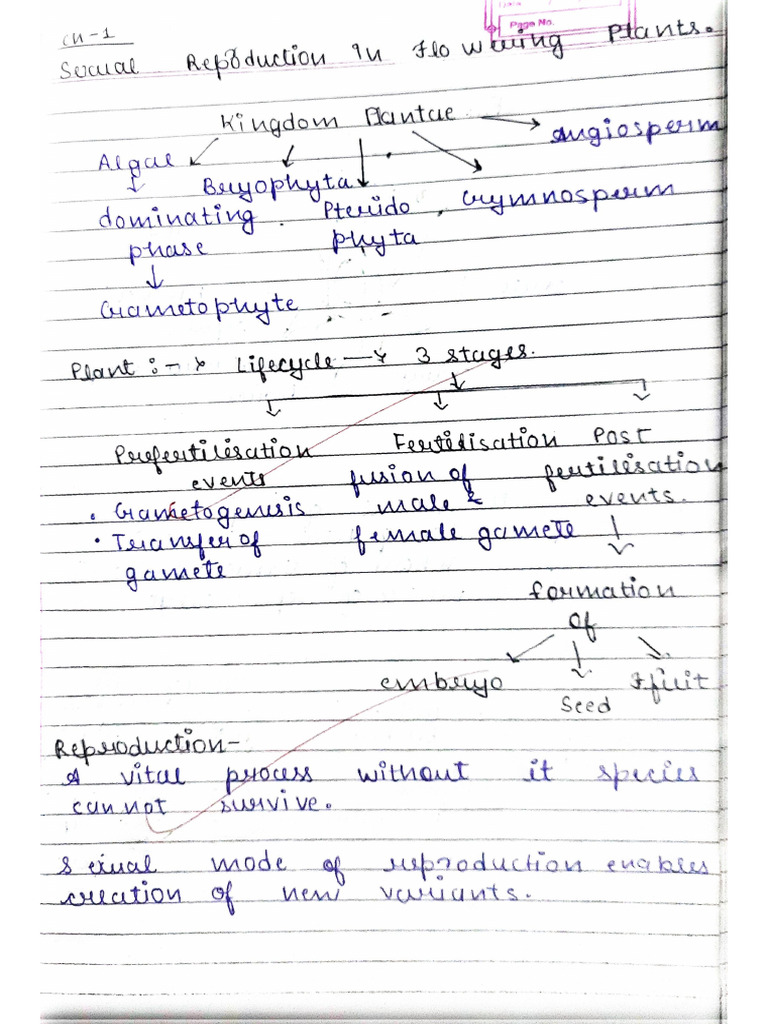 Page No.
Ch-1
Sexual Reproduction in Flowering Plants.
Kingdom Plantae
Angiosperm
Algae
Bryophyta
dominating Pterido , Gymnosperm
phase phyta
Gametophyte
Plant :- Lifecycle 3 stages.
Prefertilisation Fertilisation Post
events fusion of fertilisation
• Gametogenesis male & events.
• Transfer of female gamete
gamete
formation
of
embryo fruit
Seed
Reproduction-
A vital process without it species
cannot survive.
Sexual mode of reproduction enables
creation of new variants.